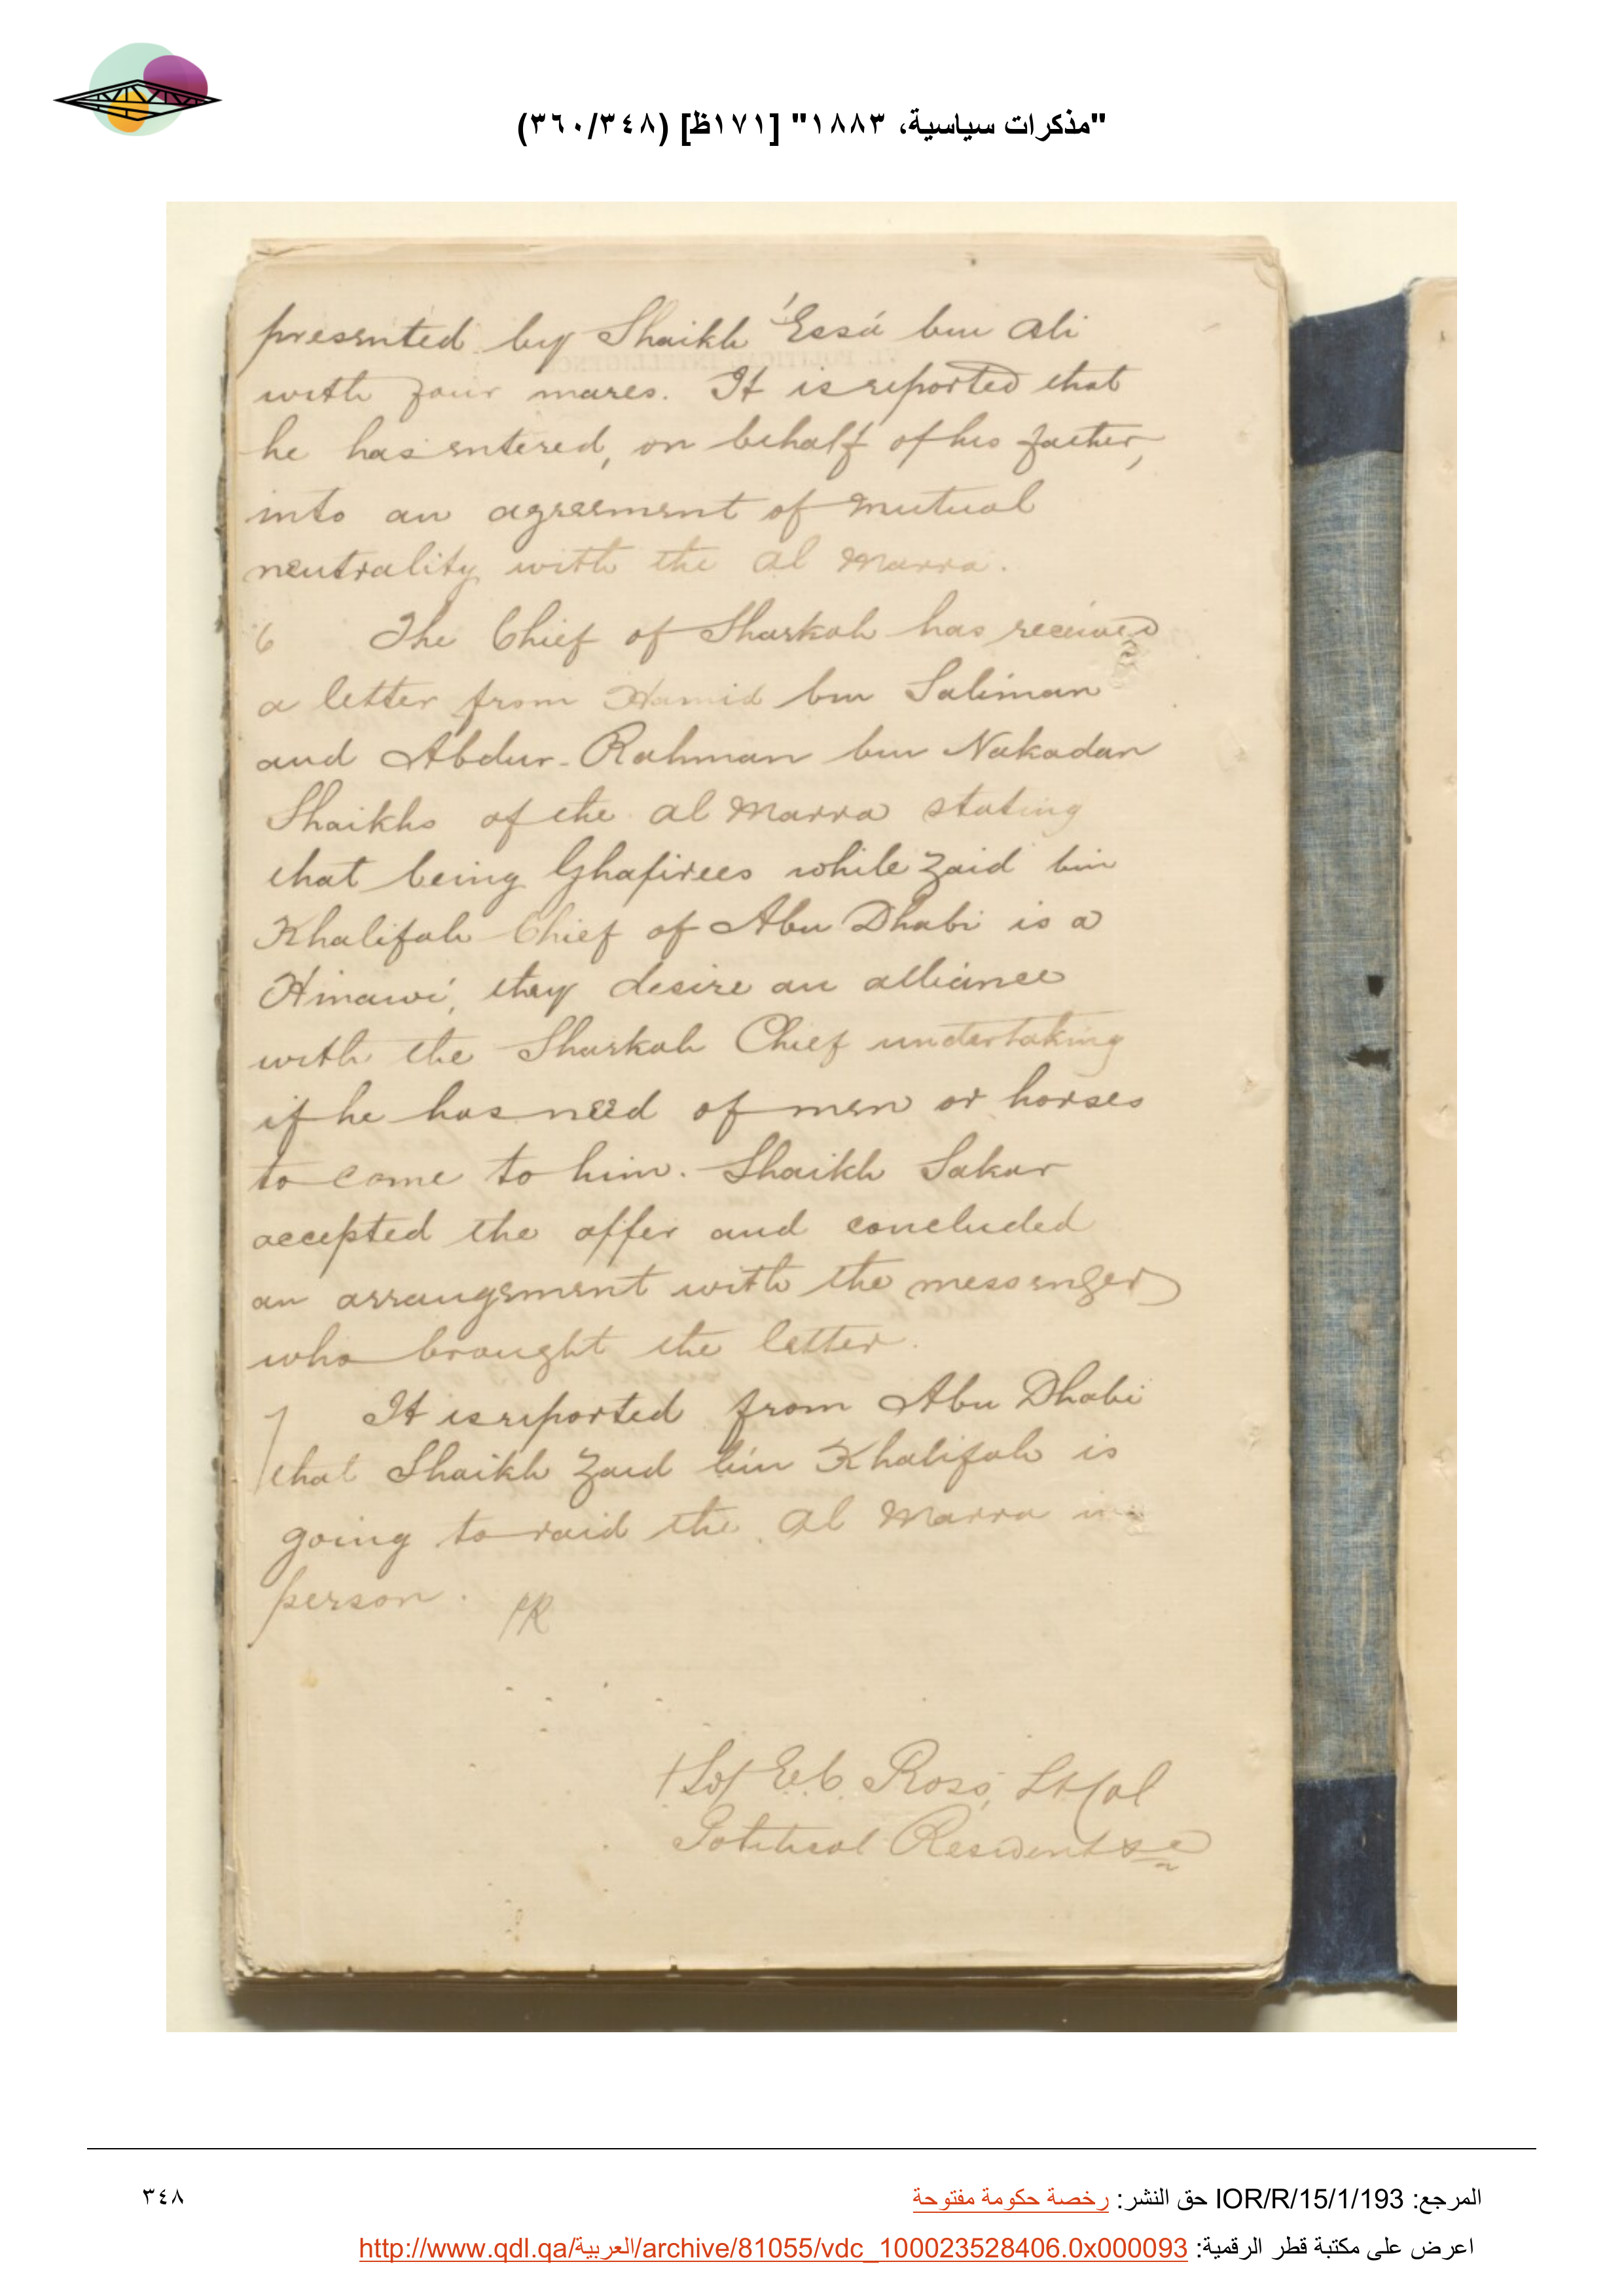 "مذكرات سياسية، ١٨٨٣" [١٧١ظ] (٣٦٠/٣٤٨)
presented by Shaikh 'Essá bin Ali
with four mares. It is reported that
he has entered, on behalf of his father,
into an agreement of mutual
neutrality with the Al Marra.
6 The Chief of Sharkah has received
a letter from Hamid bin Saliman
and Abdur-Rahman bin Nakadan
Shaikhs of the Al Marra stating
that being Ghafirees while Zaid bin
Khalifah Chief of Abu Dhabi is a
Hinawi, they desire an alliance
with the Sharkah Chief undertaking
if he has need of men or horses
to come to him. Shaikh Sakar
accepted the offer and concluded
an arrangement with the messenger
who brought the letter.
7 It is reported from Abu Dhabi
that Shaikh Zaid bin Khalifah is
going to raid the Al Marra in
person.
/Sd/ E.C. Ross, Lt Col
Political Resident &c
المرجع: IOR/R/15/1/193 حق النشر: رخصة حكومة مفتوحة
٣٤٨
اعرض على مكتبة قطر الرقمية: http://www.qdl.qa/العربية/archive/81055/vdc_100023528406.0x000093